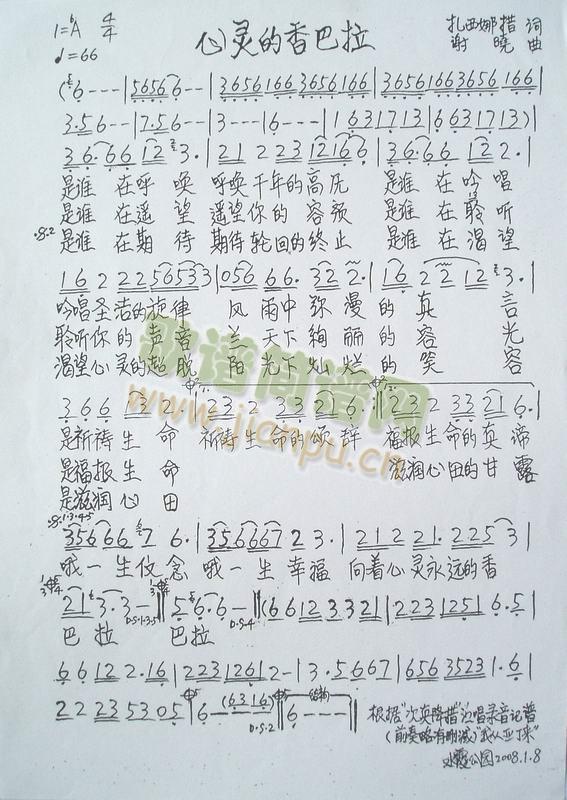 1=ᵇA 4/4
♩=66
心灵的香巴拉
扎西娜措 词
谢晓 曲
(6 - - - | 5656 6 - - | 3656166 3656166 | 3656166 3656 166 |
3·5 6 - - | 7·5 6 - - | 3 - - - | 6 - - - | 1 6 3 1 7 1 3 | 6 6 3 1 7 1 3) |
3 6· 6 6 1 2 3· | 2 1 2 2 3 1 2 1 6 6 | 3 6· 6 6 1 2 2· |
是谁 在呼唤 呼唤千年的高亢 是谁 在吟唱
是谁 在遥望 遥望你的容颜 是谁 在聆听
是谁 在期待 期待轮回的终止 是谁 在渴望
1 6 2 2 2 5 6 5 3 3 | 0 5 6 6 6· 3 2 2· | 1 6 2 2 1 2 3· |
吟唱圣洁的旋律 风雨中弥漫的真言
聆听你的声音 兰天下绚丽的容光
渴望心灵的超脱 阳光下灿烂的笑容
歌谱简谱网
www.jianpu.cn
3 6 6 1 3 2 | 2 3 2 3 3 2 1 6· :‖ 2 3 2 3 3 2 1 6· |
是祈祷生命 祈祷生命的颂辞 福报生命的真谛
是福报生命 滋润心田的甘露
是滋润心田
3 5 6 6 6 7 6· | 3 5 6 6 6 7 2 3· | 2 1 2 2 1· 2 2 5 3 |
哦一生仪念 哦一生幸福 向着心灵永远的香
2 1 3· 3 - ‖ 5 6· 6 - ‖ (6 6 1 2 3 3 2 1 | 2 2 3 1 2 5 1 6·5 |
巴拉 巴拉
D.S.1·3·5
D.S.4
6 6 1 2 2·1 6 | 2 2 3 1 2 6 1 2 - | 3·5 6 6 7 | 6 5 6 3 5 2 3 1·6 |
2 2 2 3 5 3 0 5 | 6 - (6 3 1 6) ‖ 6 - - - ‖
D.S.2
根据“次真降措”演唱录音记谱
(前奏略有删减)“我从亚丁来”
公园2008.1.8